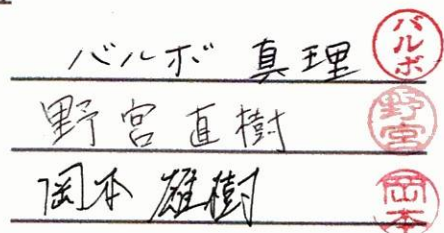 バルボ 真理 バルボ
野宮 直樹 野宮
岡本 雄樹 岡本